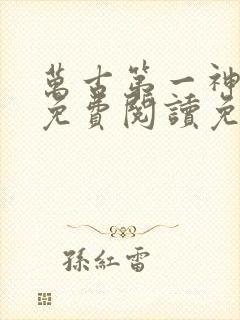 萬古第一神
免費閱讀免
孫紅雷